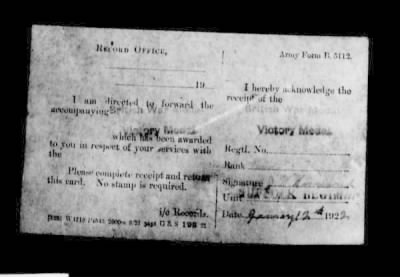 RECORD OFFICE,
19
I am directed to forward the
accompanying British War
Victory Medal
which has been awarded
to you in respect of your services with
the
Please complete receipt and return
this card. No stamp is required.
i/c Records.
Army Form B. 5112.
I hereby acknowledge the
receipt of the
British War Medal
Victory Medal
Regtl. No.
Rank
Signature
Unit SUFFOLK REGIMENT
Date January 12th 1922